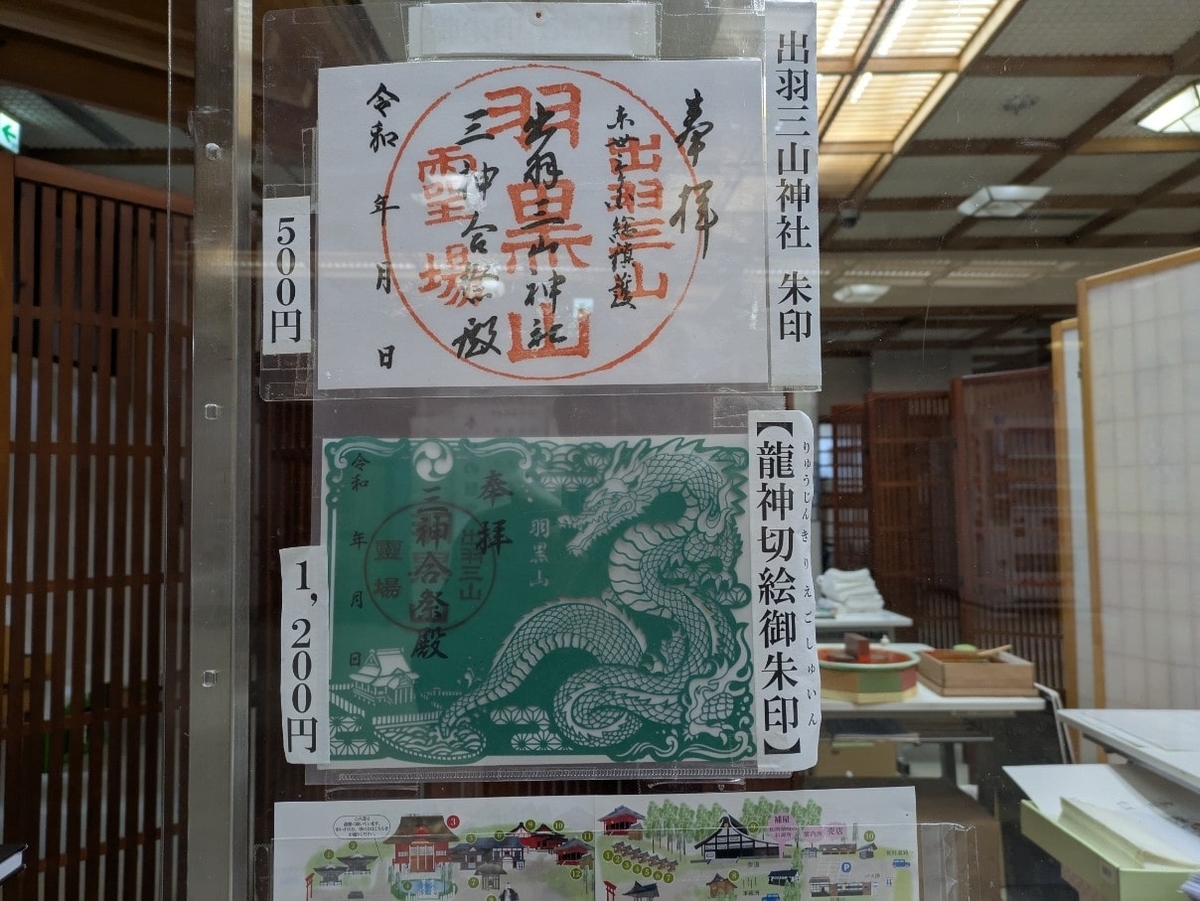 出羽三山神社 朱印
奉拝
出羽三山
出羽三山神社
三神合祭殿
羽黒山
霊場
令和 年 月 日
500円
【龍神切絵御朱印】
りゅうじんきりえごしゅいん
羽黒山
奉拝
出羽三山
三神合祭殿
霊場
令和 年 月 日
1,200円